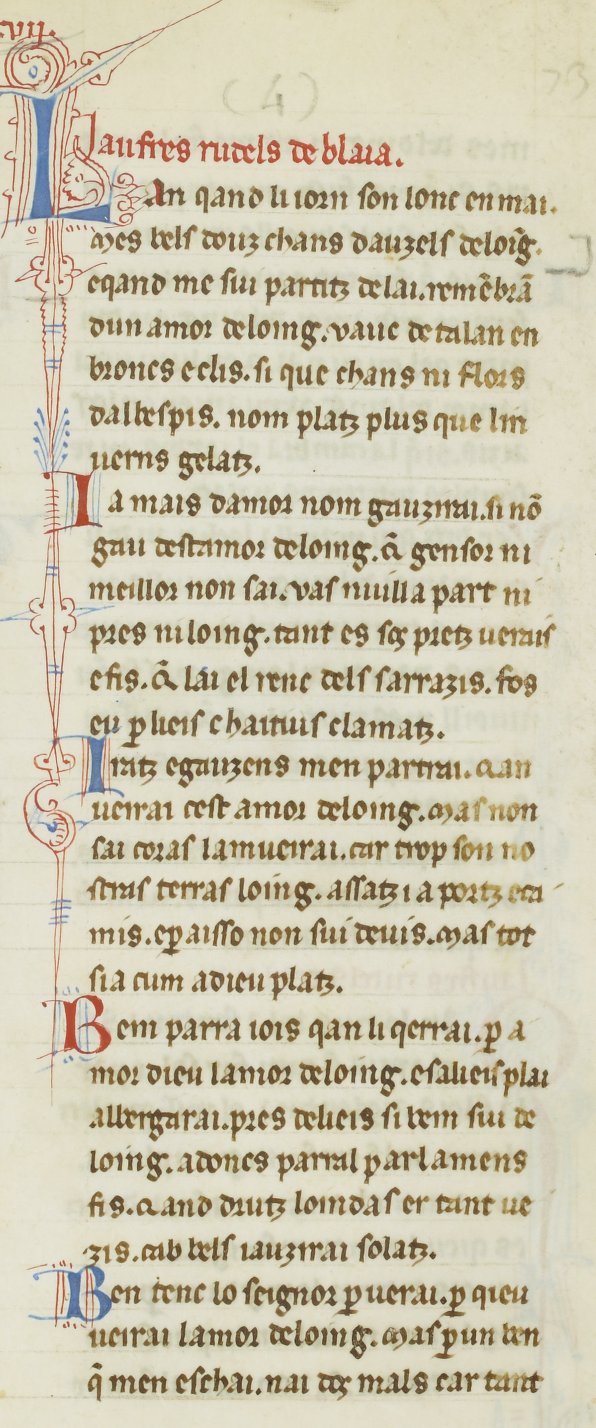 .xvii.
(4)
Jaufres rudels de blaia.
LAn qand li iorn son lonc en mai.
Mes bels douz chans dauzels deloīg.
eqand me sui partitz de lai. remēbrā
dun amor deloing. vauc de talan en
broncs eclis. si que chans ni flors
dalbespis. nom platz plus que lin
uerns gelatz.
Ia mais damor nom gauzirai. si nō
gau destamor deloing. q̄ gensor ni
meillor non sai. vas nuilla part ni
pres ni loing. tant es sos pretz uerais
efis. q̄ lai el renc dels sarrazis. fos
eu ꝑ lieis chaitius clamatz.
Iratz egauzens men partrai. qan
ueirai cest amor deloing. Mas non
sai coras lamueirai. car trop son no
stras terras loing. assatz i a portz eca
mis. eꝑ aisso non sui deuis. Mas tot
sia cum adieu platz.
Bem parra iois qan li qerrai. ꝑ a
mor dieu lamor deloing. esalieis plai
albergarai. pres delieis si bem sui de
loing. adoncs parral parlamens
fis. qand drutz loindas er tant ue
zis. cab bels iauzirai solatz.
Ben tenc lo seignor ꝑ uerai. ꝑ qieu
ueirai lamor deloing. Mas ꝑ un ben
q̄ men eschai. nai dos mals car tant